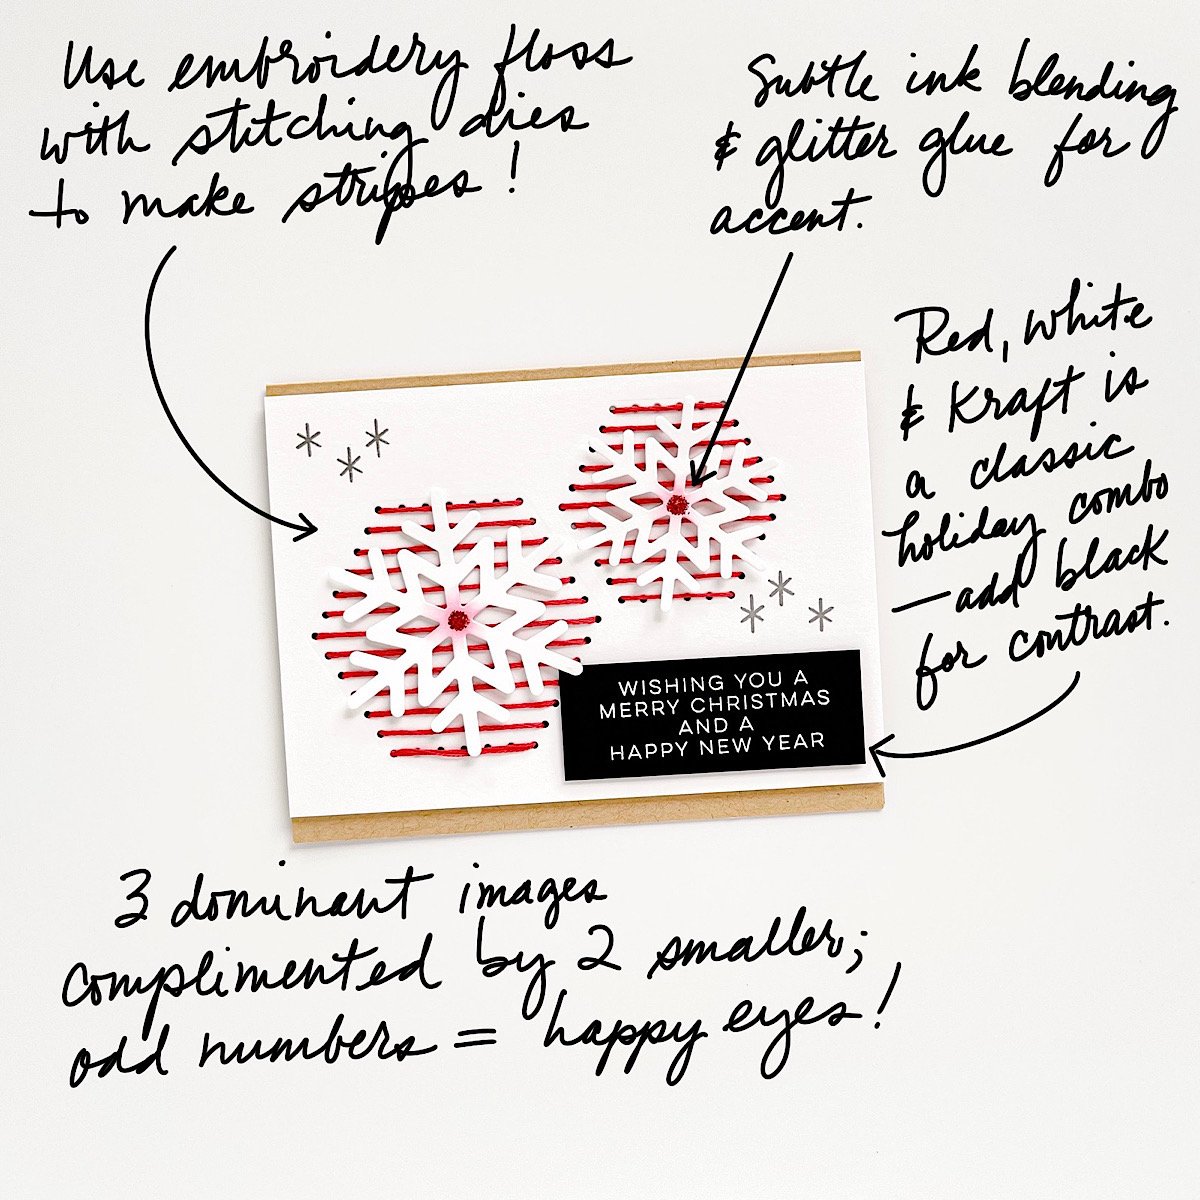 Use embroidery floss
with stitching dies
to make stripes!
Subtle ink blending
& glitter glue for
accent.
Red, white
& Kraft is
a classic
holiday combo
—add black
for contrast.
WISHING YOU A
MERRY CHRISTMAS
AND A
HAPPY NEW YEAR
3 dominant images
complimented by 2 smaller;
odd numbers = happy eyes!